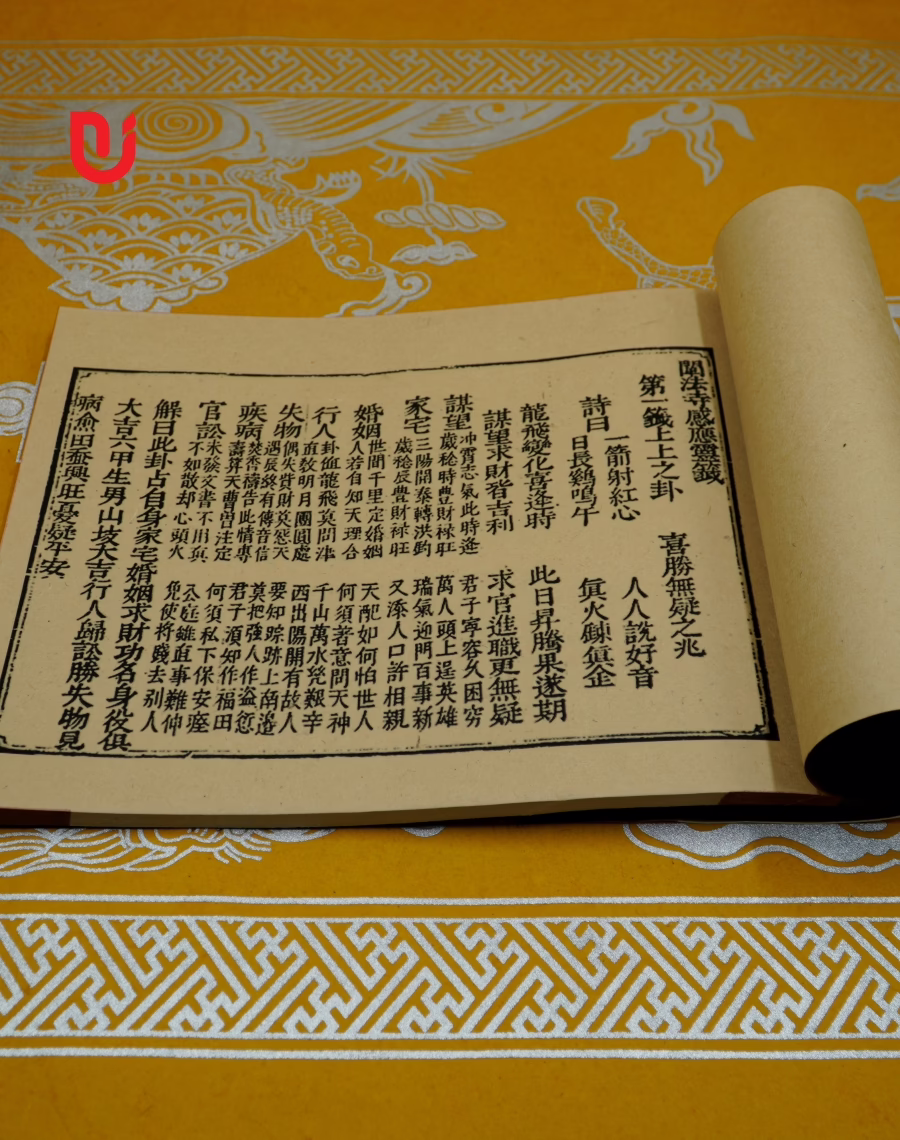 閳法寺感應靈籤
第一籤上上之卦 喜勝無疑之兆
詩曰 一箭射紅心 人人說好音
日長鷄鳴午 眞火鍊眞金
龍飛變化喜逢時 此日昇騰果遂期
謀望求財皆吉利 求官進職更無疑
謀望 冲霄志氣此時逢 君子寧容久困穷
歲稔時豊財禄旺 萬人頭上逞英雄
家宅 三陽開泰轉洪鈞 瑞氣迎門百事新
歲稔辰豊財禄旺 又添人口許相親
婚姻 世間千里定婚姻 天配如何怕世人
人若自知天理合 何須著意問天神
行人 卦值龍飛莫問津 千山萬水免艱辛
直敎明月團圓處 西出陽關有故人
失物 偶失資財莫怨天 要知踪跡上南邉
遇辰終有傳音信 莫把强人作盜愆
疾病 焚香禱告此情專 君子須知作福田
壽算天曹曾注定 何須私下保安痊
官訟 未發文書不用真 公庭雖直事難伸
不如散却心頭火 免使将錢去别人
解曰此卦占自身家宅婚姻求財功名身役俱
大吉六甲生男山坟大吉行人歸訟勝失物見
病愈田蚕興旺憂疑平安